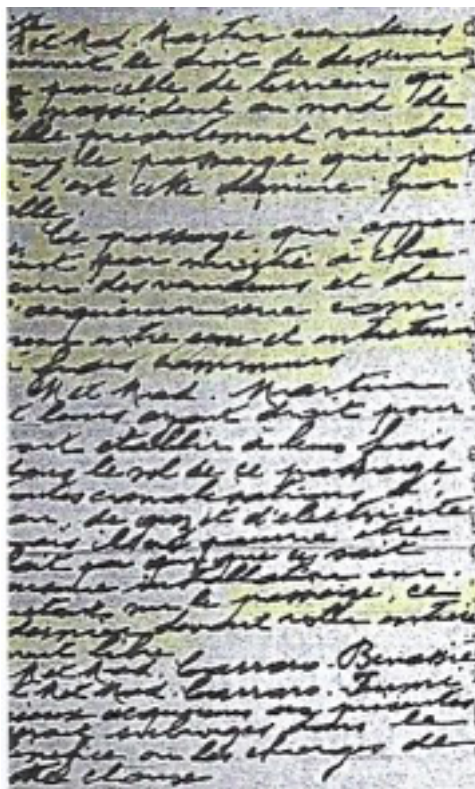 M et Mad. Martin vendeurs
ront le droit de desservir
parcelle de terrain qu
possèdent au nord de
elle présentement vendue
le passage qui joint
l'est cette dernière par
elle.
Ce passage qui appar
ient par moitié à cha
cun des vendeurs et de
acquéreur sera com
mun entre eux et entretenu
à frais communs
M et Mad. Martin
t leurs ayant droit pour
ront établir à leurs frais
dans le sol de ce passage
outes canalisations d'
eau, de gaz et d'électricité
mais il ne pourra être
fait par qui que ce soit
aucune installation em
sur le passage, ce
dernier devant rester entière
ment libre
M et Mad. Carraro. Benassi
t M et Mad. Carraro.
acquéreurs aux présentes
seront subrogés dans le
bénéfice ou les charges de
cette clause